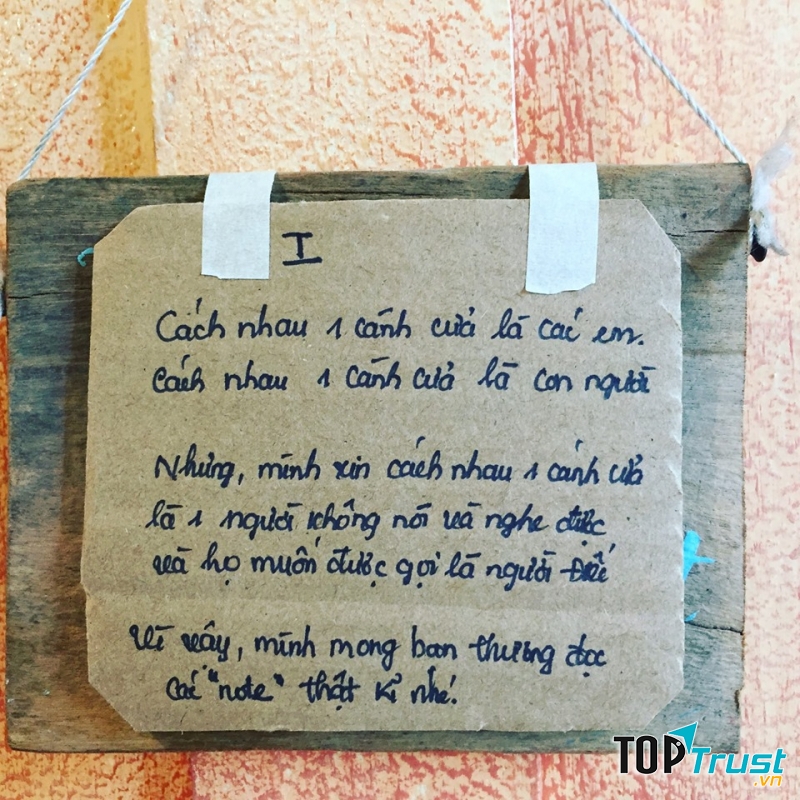 I
Cách nhau 1 cánh cửa là các em.
Cách nhau 1 cánh cửa là con người
Nhưng, mình xin cách nhau 1 cánh cửa
là 1 người không nói và nghe được
và họ muốn được gọi là người Điếc
Vì vậy, mình mong bạn thương đọc
các "note" thật kĩ nhé.
TOPTrust
.vn